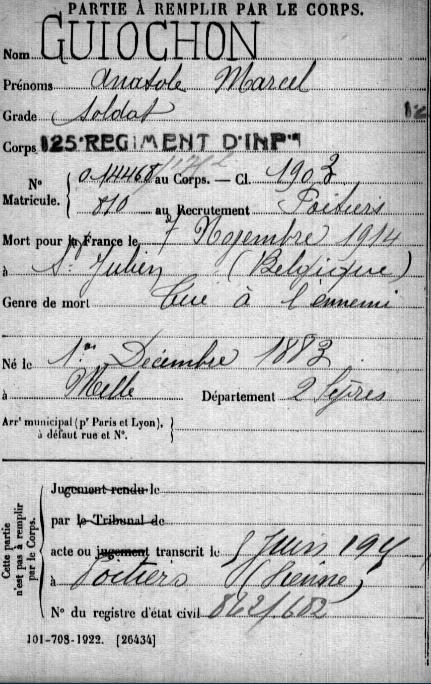 PARTIE À REMPLIR PAR LE CORPS.
Nom GUIOCHON
Prénoms Anatole Marcel
Grade Soldat
Corps 125e REGIMENT D'INFie
N° Matricule. { 014468 au Corps. — Cl. 1903
810 au Recrutement Poitiers
Mort pour la France le 7 Novembre 1914
à St Julien (Belgique)
Genre de mort Tué à l'ennemi
Né le 1er Décembre 1883
à Melle Département 2 Sèvres
Arrt municipal (pr Paris et Lyon), à défaut rue et N°. }
Cette partie n'est pas à remplir par le Corps.
Jugement rendu le
par le Tribunal de
acte ou jugement transcrit le 5 Juin
à Poitiers (Vienne)
N° du registre d'état civil 862/682
101-708-1922. [26434]